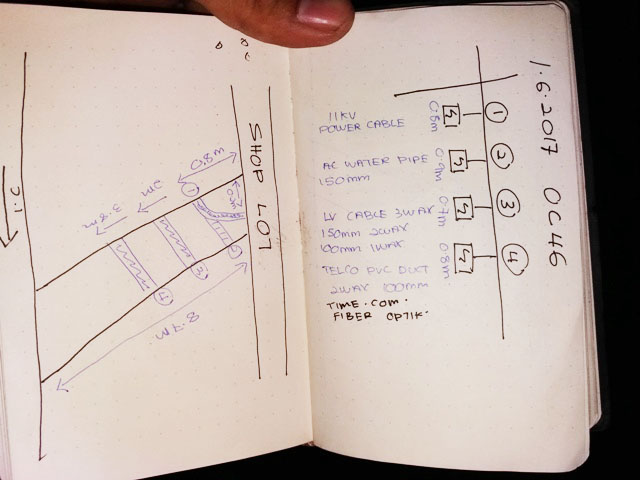 1.6.2017 OC46
1
2
3
4
0.8m
0.9m
0.7m
0.8m
11KV
POWER CABLE
AC WATER PIPE
150MM
LV CABLE 3WAY
150mm 2WAY
100mm 1WAY
TELCO PVC DUCT
2WAY 100MM
TIME.COM.
FIBER OPTIK.
SHOP LOT
0.8M
2M
3.8m
1
2
3
4
8.7m